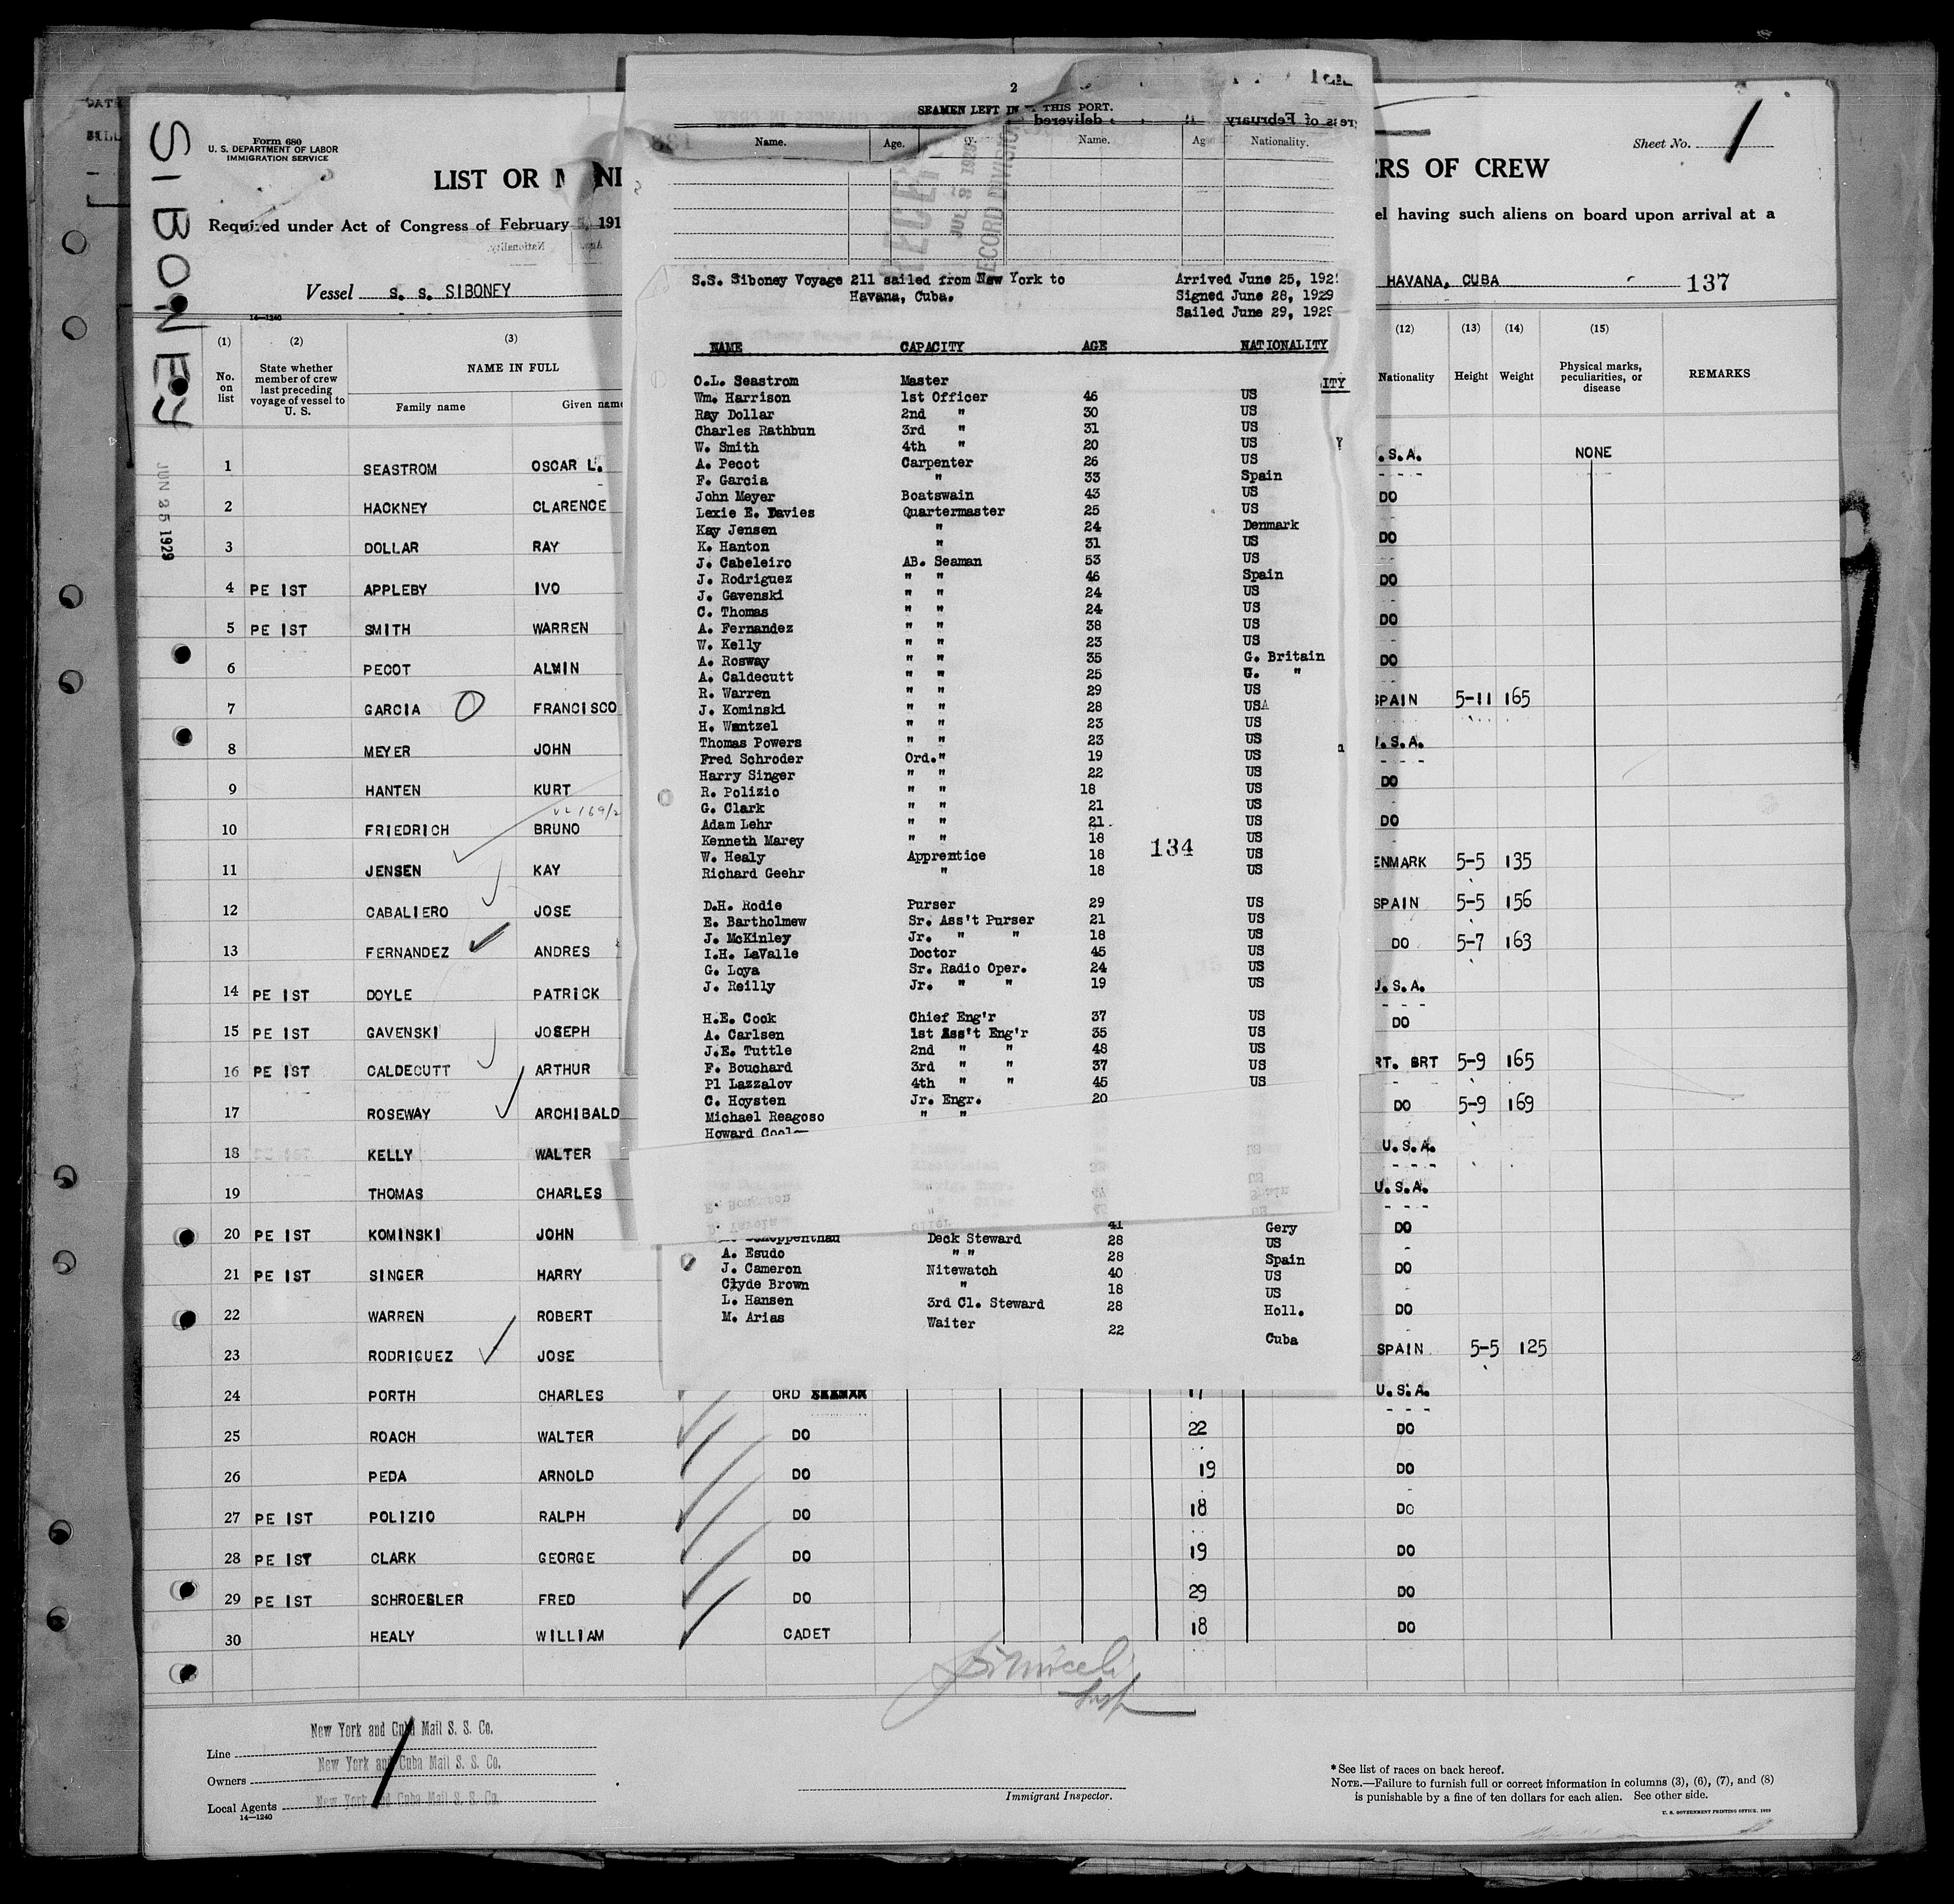 SIBONEY
JUN 25 1929
Form 680
U. S. DEPARTMENT OF LABOR
IMMIGRATION SERVICE
LIST OR
Required under Act of Congress of February 5, 191
Vessel S. S. SIBONEY
14—1240
(1) (2) (3)
No. on list
State whether member of crew last preceding voyage of vessel to U. S.
NAME IN FULL
Family name Given name
1 SEASTROM OSCAR L.
2 HACKNEY CLARENCE
3 DOLLAR RAY
4 PE IST APPLEBY IVO
5 PE IST SMITH WARREN
6 PECOT ALMIN
7 GARCIA FRANCISCO
8 MEYER JOHN
9 HANTEN KURT
10 FRIEDRICH BRUNO
11 JENSEN KAY
12 CABALIERO JOSE
13 FERNANDEZ ANDRES
14 PE IST DOYLE PATRICK
15 PE IST GAVENSKI JOSEPH
16 PE IST CALDECUTT ARTHUR
17 ROSEWAY ARCHIBALD
18 KELLY WALTER
19 THOMAS CHARLES
20 PE IST KOMINSKI JOHN
21 PE IST SINGER HARRY
22 WARREN ROBERT
23 RODRIGUEZ JOSE
24 PORTH CHARLES ORD SEAMAN 17
25 ROACH WALTER DO 22
26 PEDA ARNOLD DO 19
27 PE IST POLIZIO RALPH DO 18
28 PE IST CLARK GEORGE DO 19
29 PE IST SCHROESLER FRED DO 29
30 HEALY WILLIAM CADET 18
2
SEAMEN LEFT IN THIS PORT.
delivered
February
Name. Age. Name. Age Nationality.
JUL 3 1929
RECORD DIVISION
S.S. Siboney Voyage 211 sailed from New York to
Havana, Cuba.
Arrived June 25, 1929
Signed June 28, 1929
Sailed June 29, 1929
NAME CAPACITY AGE NATIONALITY
O.L. Seastrom Master
Wm. Harrison 1st Officer 46 US
Ray Dollar 2nd " 30 US
Charles Rathbun 3rd " 31 US
W. Smith 4th " 20 US
A. Pecot Carpenter 26 US
F. Garcia " 33 Spain
John Meyer Boatswain 43 US
Lexie E. Davies Quartermaster 25 US
Kay Jensen " 24 Denmark
K. Hanton " 31 US
J. Cabeleiro AB. Seaman 53 US
J. Rodriguez " " 46 Spain
J. Gavenski " " 24 US
C. Thomas " " 24 US
A. Fernandez " " 38 US
W. Kelly " " 23 US
A. Rosway " " 35 G. Britain
A. Caldecutt " " 25 G. "
R. Warren " " 29 US
J. Kominski " " 28 USA
H. Wantzel " " 23 US
Thomas Powers " " 23 US
Fred Schroder Ord." 19 US
Harry Singer " " 22 US
R. Polizio " " 18 US
G. Clark " " 21 US
Adam Lehr " " 21 US
Kenneth Marey " " 18 US
W. Healy Apprentice 18 US
Richard Geehr " 18 US
134
D.H. Rodie Purser 29 US
E. Bartholmew Sr. Ass't Purser 21 US
J. McKinley Jr. " " 18 US
I.H. LaValle Doctor 45 US
G. Loya Sr. Radio Oper. 24 US
J. Reilly Jr. " " 19 US
H.E. Cook Chief Eng'r 37 US
A. Carlsen 1st Ass't Eng'r 35 US
J.E. Tuttle 2nd " " 48 US
F. Bouchard 3rd " " 37 US
Pl Lazzalov 4th " " 45 US
C. Hoysten Jr. Engr. 20
Michael Reagoso " "
Howard
41 Gery
Deck Steward 28 US
A. Esudo " " 28 Spain
J. Cameron Nitewatch 40 US
Clyde Brown " 18 US
L. Hansen 3rd Cl. Steward 28 Holl.
M. Arias Waiter 22 Cuba
Sheet No. 1
ERS OF CREW
el having such aliens on board upon arrival at a
HAVANA, CUBA 137
(12) (13) (14) (15)
Nationality Height Weight Physical marks, peculiarities, or disease REMARKS
.S.A. NONE
DO
DO
DO
DO
DO
SPAIN 5-11 165
U.S.A.
DO
DO
ENMARK 5-5 135
SPAIN 5-5 156
DO 5-7 163
U.S.A.
DO
RT. BRT 5-9 165
DO 5-9 169
U.S.A.
U.S.A.
DO
DO
DO
SPAIN 5-5 125
U.S.A.
DO
DO
DO
DO
DO
DO
Insp
Line New York and Cuba Mail S. S. Co.
Owners New York and Cuba Mail S. S. Co.
Local Agents New York and Cuba Mail S. S. Co.
14—1240
Immigrant Inspector.
*See list of races on back hereof.
NOTE.—Failure to furnish full or correct information in columns (3), (6), (7), and (8)
is punishable by a fine of ten dollars for each alien. See other side.
U. S. GOVERNMENT PRINTING OFFICE. 1929